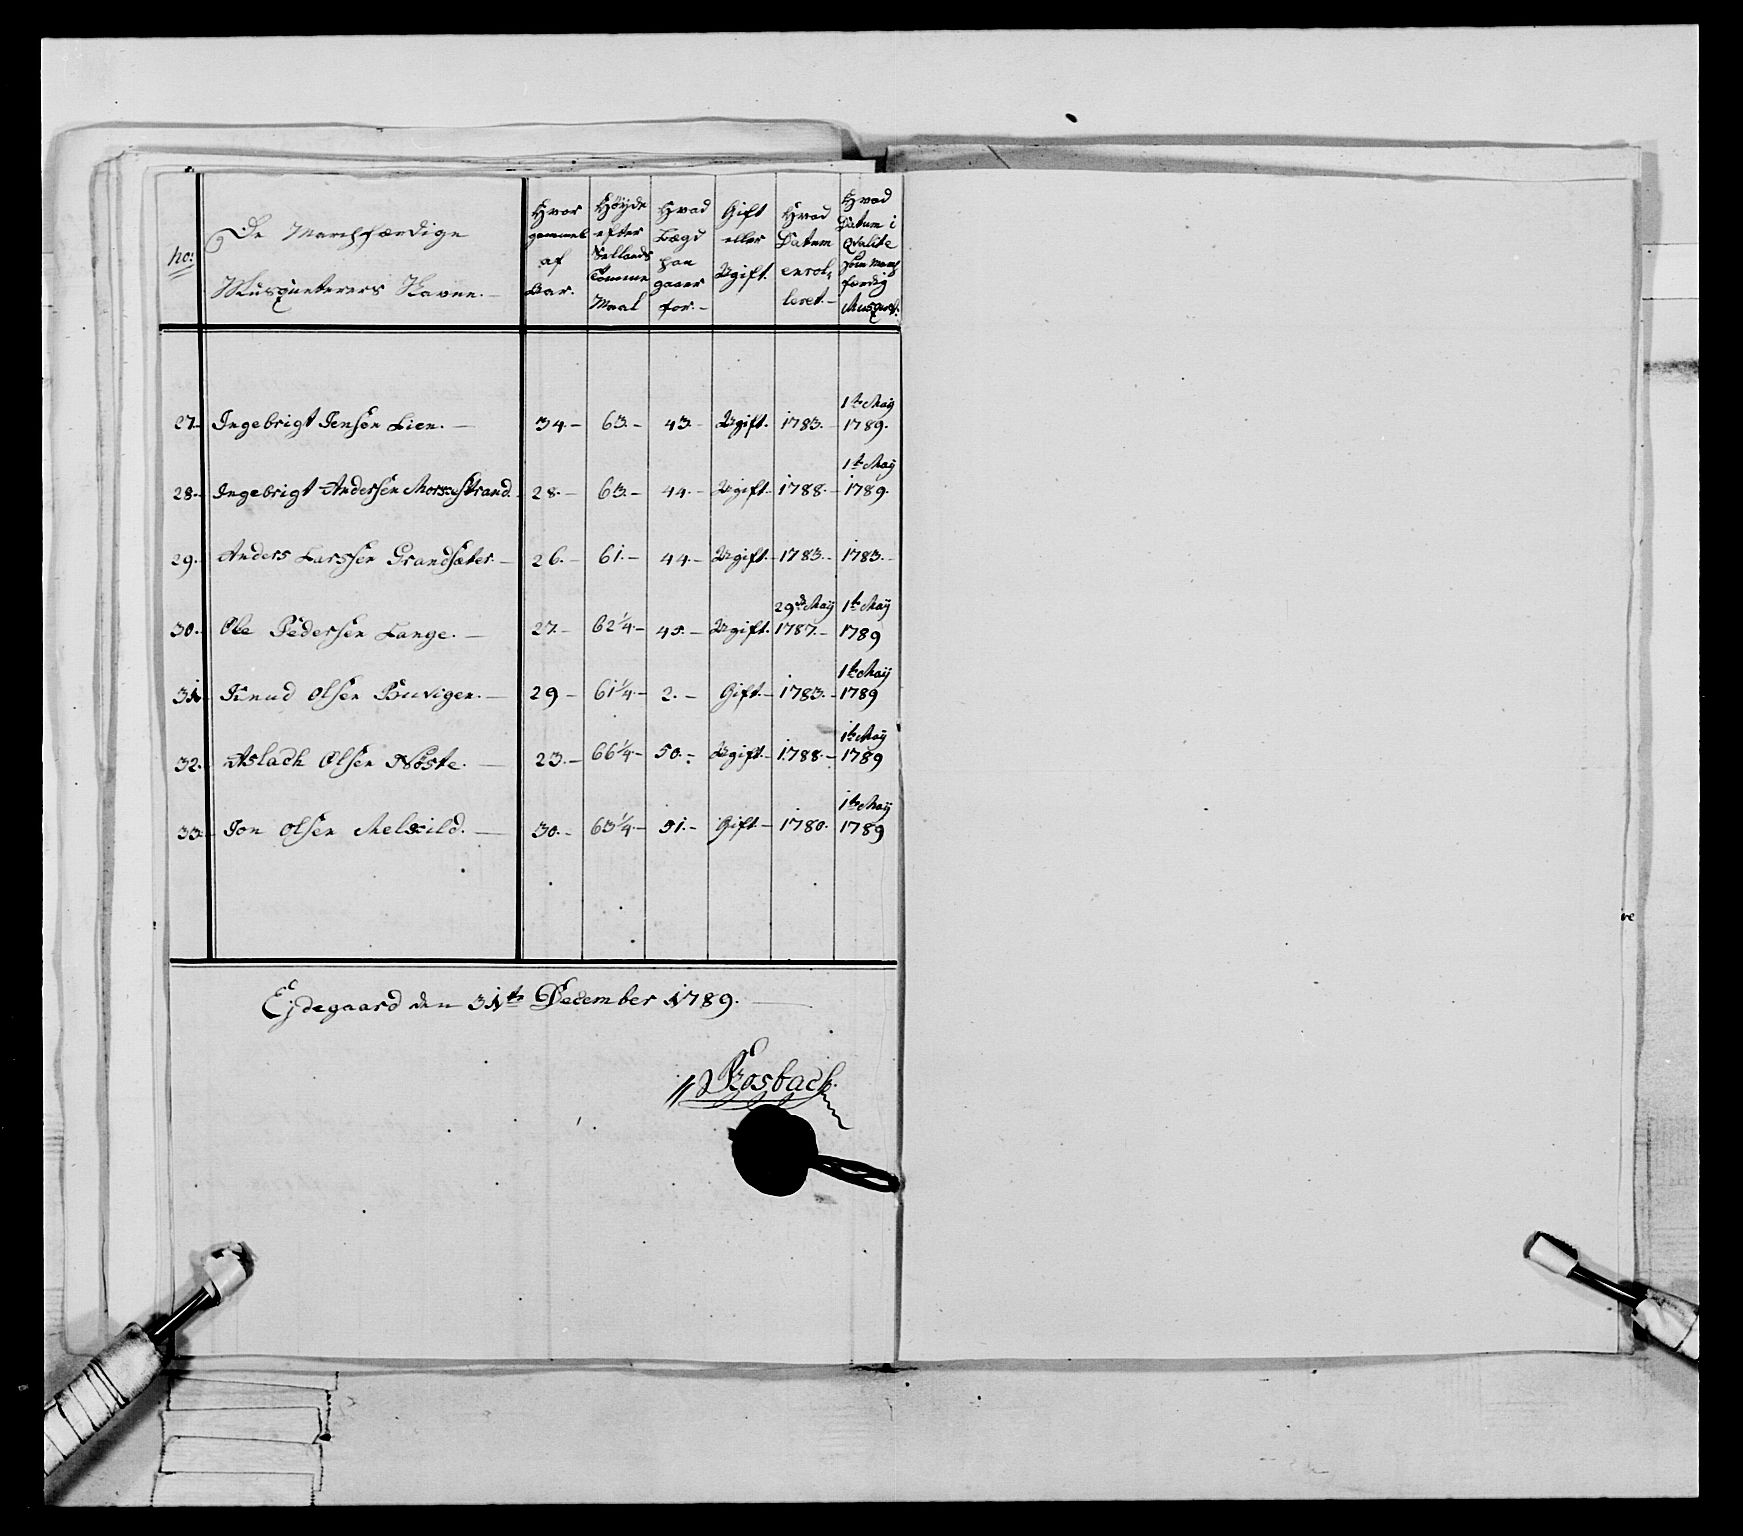 no: De Marchfærdige Musqueterers Navne. Hvor gammel af Aar. Høyde efter Sellands Tomme Maal Hvad Lægd han gaaer for. Gift eller Ugift. Hvad Datum enrolleret. Hvad Datum i Qvalite som March færdig Musquet.
1te Maÿ
27. Ingebrigt Jensen Lien. 34. 63. 43. Ugift. 1783. 1789.
1te Maÿ
28. Ingebrigt Andersen Morsestrand. 28. 63. 44. Ugift. 1788. 1789.
29. Anders Larssen Grandsæter. 26. 61. 44. Ugift. 1783. 1783.
29de Maÿ 1te Maÿ
30. Ole Pedersen Lange. 27. 62 1/4. 45. Ugift. 1787. 1789
1te Maÿ
31. Knud Olsen Buvigen. 29 61 1/4. 2. Gift. 1783. 1789
1te Maÿ
32. Aslach Olsen Nøste. 23. 66 1/4. 50. Ugift. 1788. 1789
1te Maÿ
33. Jon Olsen Melxild. 30. 63 1/4. 51. Gift 1780. 1789
Ejdegaard den 31te December 1789.
Rosbach.